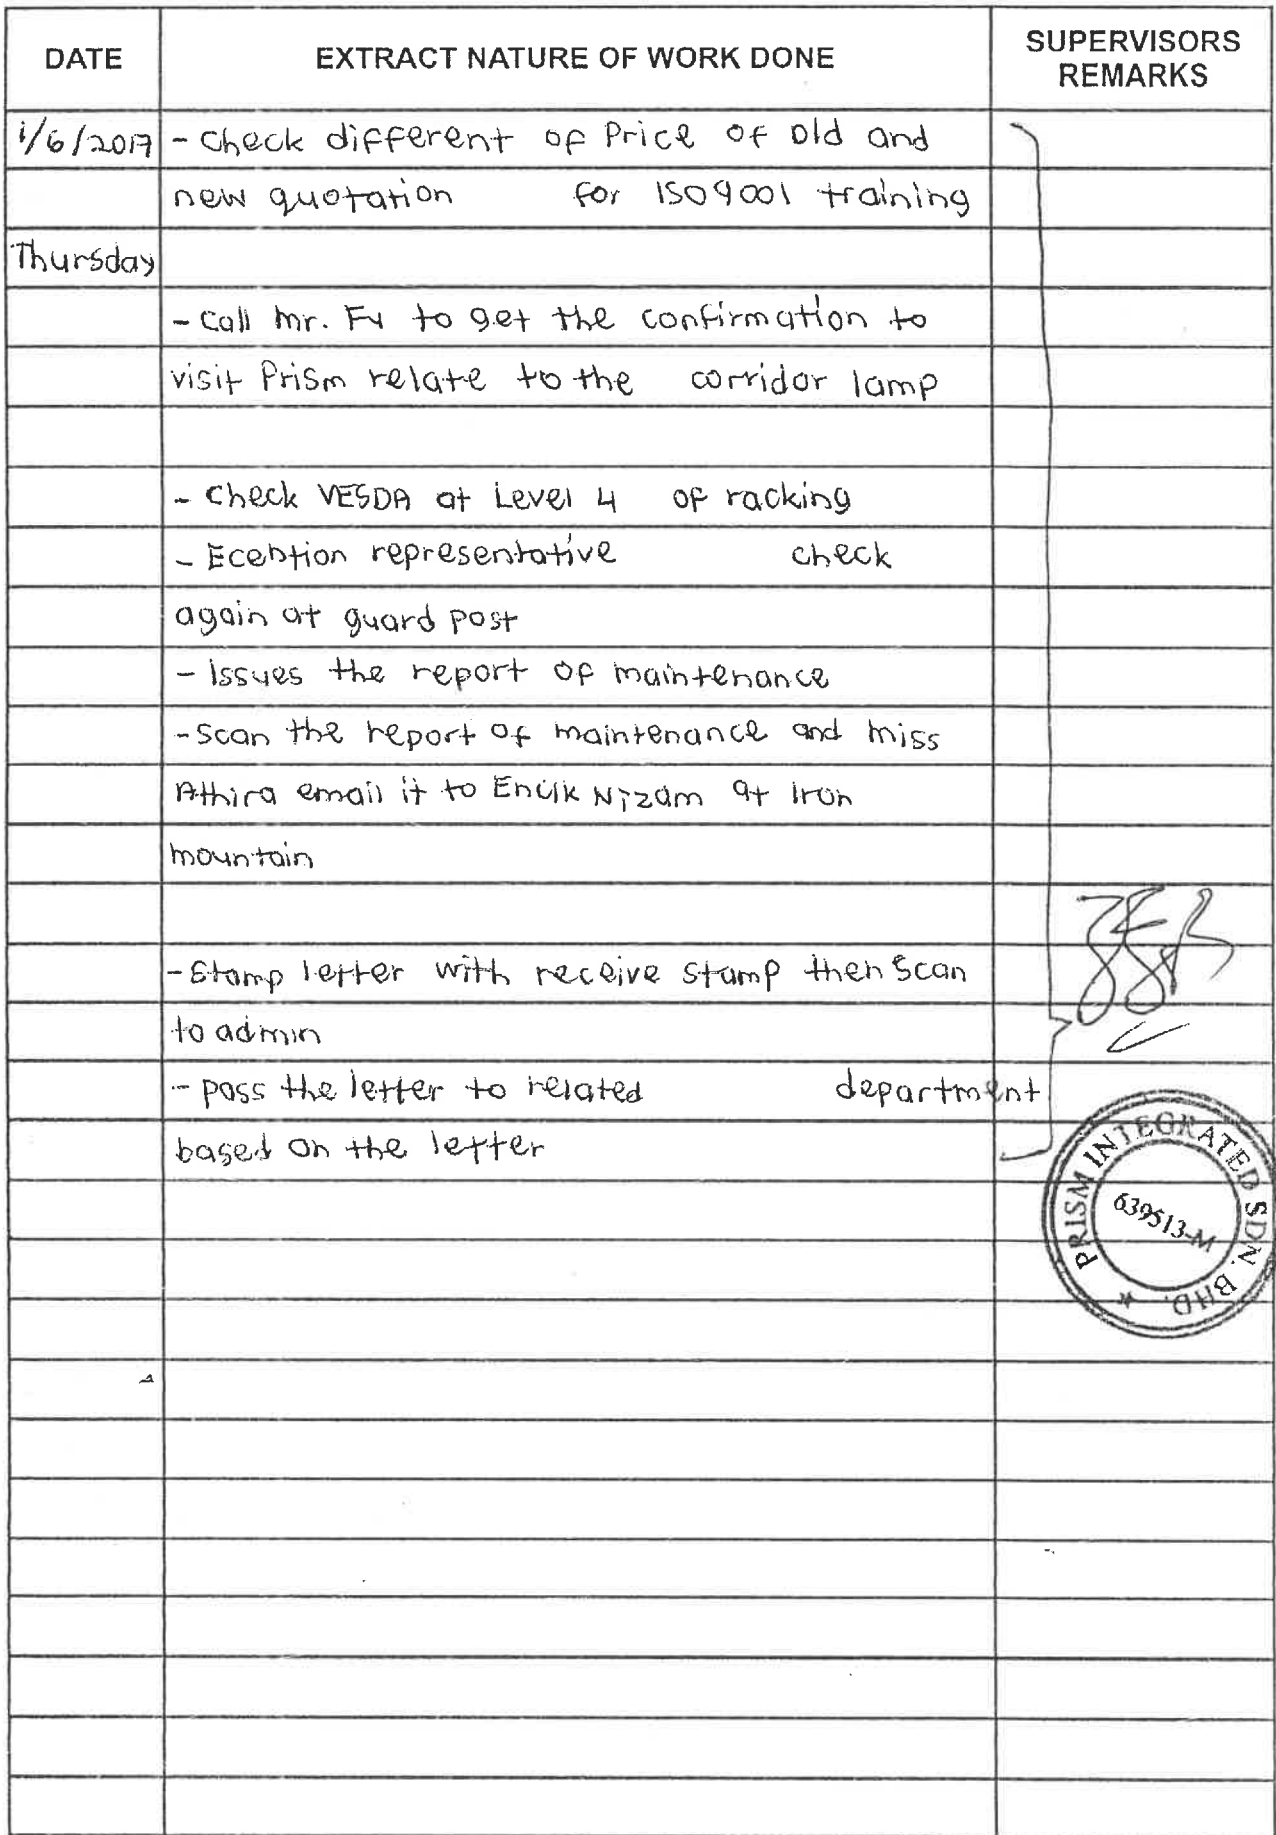 DATE EXTRACT NATURE OF WORK DONE SUPERVISORS REMARKS
1/6/2017 - Check different of Price of Old and
new quotation for ISO9001 training
Thursday
- Call Mr. Fu to get the confirmation to
visit Prism relate to the corridor lamp
- Check VESDA at Level 4 of racking
- Ecebtion representative check
again at guard post
- Issues the report of maintenance
- Scan the report of maintenance and miss
Athira email it to Encik Nizam at Iron
mountain
- Stamp letter with receive stamp then scan
to admin
- pass the letter to related department
based on the letter
PRISM INTEGRATED SDN. BHD.
639513-M